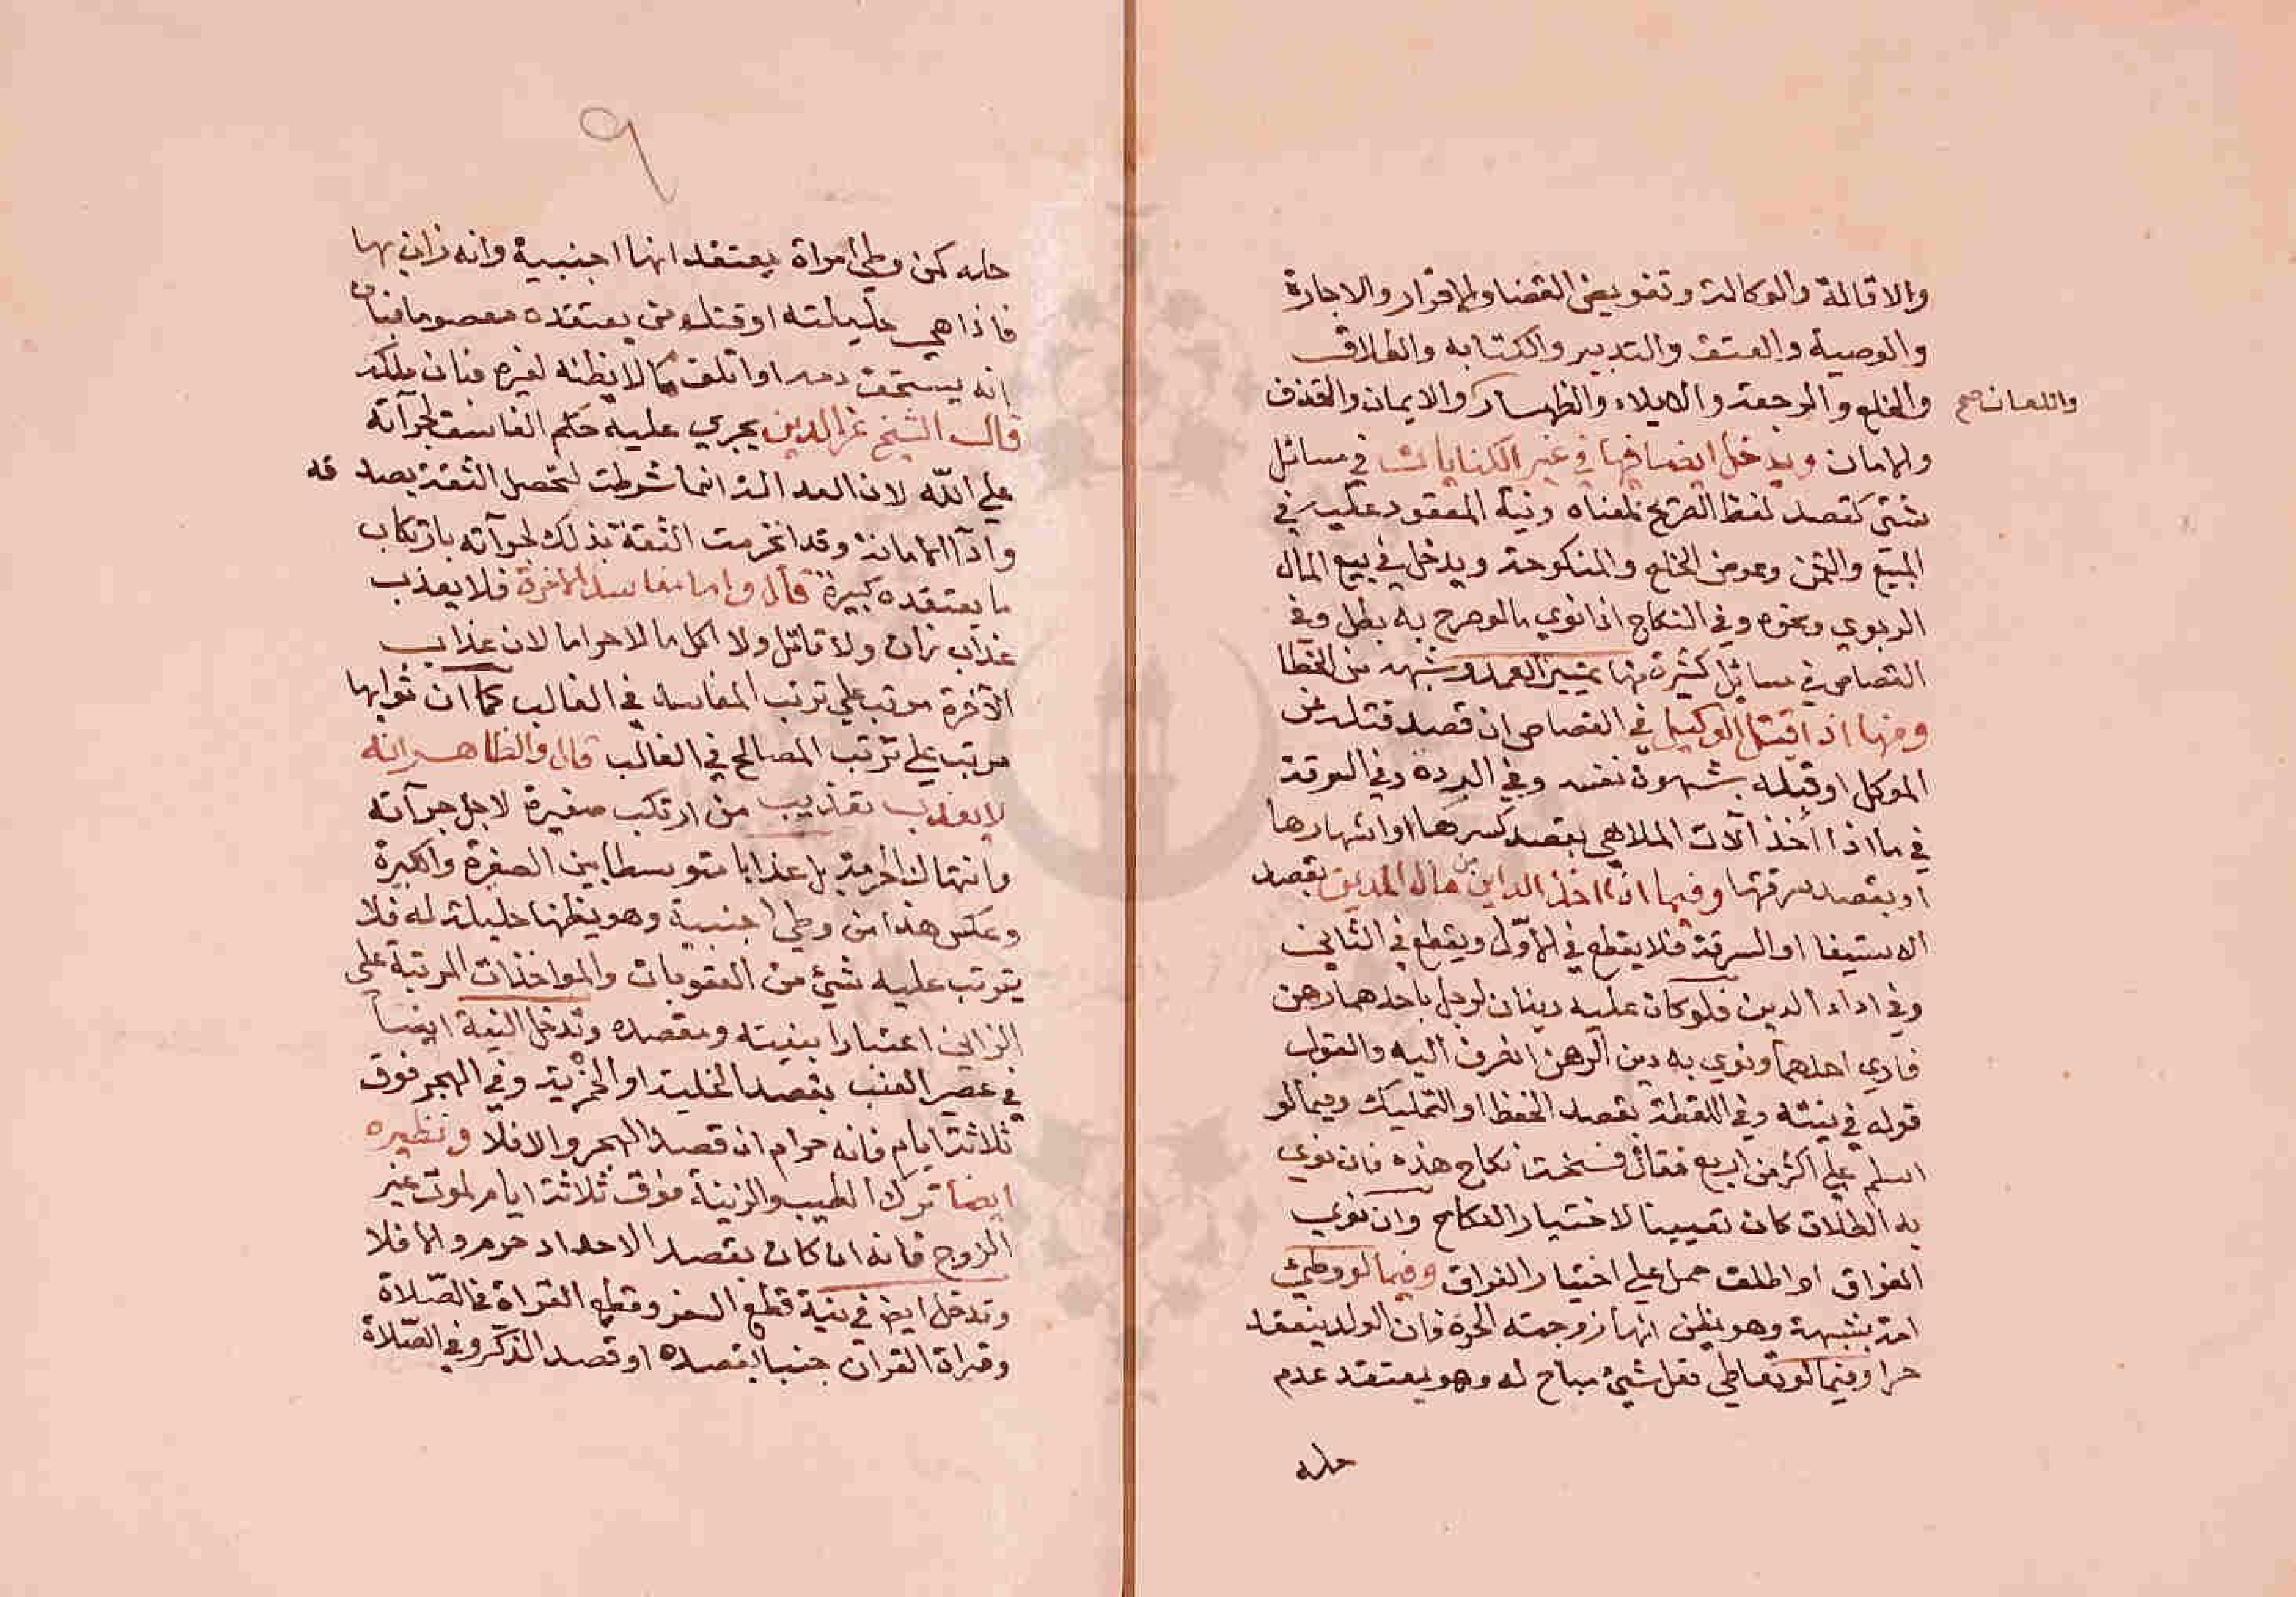 والاقالة والوكالة وتفويض القضا والاقرار والاجارة
والوصية والعتق والتدبير والكتابه والطلاق
والخلع والرجعة والايلاء والظهار والايمان والقذف
واللعان صح
والامان ويدخل ايضا فيها في غير الكنايات في مسائل
شتى كقصد لفظ الصريح لمعناه ونية المعقود عليه في
المبيع والثمن وعوض الخلع والمنكوحة ويدخل في بيع المال
الربوي ونحوه وفي النكاح اذا نوي مالوصرح به بطل وفي
القصاص في مسائل كثيرة منها تمييز العمد وشبهه من الخطا
ومنها اذا قتل الوكيل في القصاص ان قصد قتله عن
الموكل او قتله بشهوة نفسه وفي الردة وفي السرقة
في ما اذا اخذ آلات الملاهي بقصد كسرها او اشهارها
او بقصد سرقتها وفيما اذا اخذ الداين من مال المدين بقصد
الاستيفا او السرقة فلا يقطع في الاوّل ويقطع في الثاني
وفي اداء الدين فلو كان عليه دينان لرجل باحدهما رهن
فادي احدهما ونوي به دين الرهن انصرف اليه والقول
قوله في نيته وفي اللقطة بقصد الحفظ او التمليك وفيما لو
اسلم علي اكثر من اربع فقال فسخت نكاح هذه فان نوي
به الطلاق كان تعيينا لاختيار النكاح وان نوي
الفراق او اطلق حمل علي اختيار الفراق وفيما لو وطئ
امة بشبهة وهو يظن انها زوجته الحرة فان الولد ينعقد
حرا وفيما لو تعاطي فعل شئ مباح له وهو يعتقد عدم
حله
٩
حله كمن وطي امراة يعتقد انها اجنبية وانه زان بها
فاذا هي حليلته او قتل من يعتقده معصوما فبان
انه يستحق دمه او اتلف مالا يظنه لغيره فبان ملكه
قال الشيخ عز الدين يجري عليه حكم الفاسق لجرآته
علي الله لان العدالة انما شرطت لتحصل الثقة بصدقه
وادآ الامانة وقد انخرمت الثقة بذلك لجرآته بارتكاب
ما يعتقده كبيرة قال واما مفاسد الاخرة فلا يعذب
عذاب زان ولا قاتل ولا اكل مالا حراما لان عذاب
الآخرة مرتب علي ترتب المفاسد في الغالب كما ان ثوابها
مرتب علي ترتب المصالح في الغالب قال والظاهر انه
لا يعذب تعذيب من ارتكب صغيرة لاجل جرآته
وانتهاك الحرمة بل عذابا متوسطا بين الصغيرة والكبيرة
وعكس هذا من وطي اجنبية وهو يظنها حليلة له فلا
يترتب عليه شئ من العقوبات والمواخذات المرتبة علي
الزاني اعتبارا بنيته ومقصده وتدخل النية ايضا
في عصير العنب بقصد الخلية او الخمرية وفي الهجر فوق
ثلاثة ايام فانه حرام ان قصد الهجر والا فلا ونظيره
ايضا ترك الطيب والزينة فوق ثلاثة ايام لموت غير
الزوج فانه ان كان بقصد الاحداد حرم والا فلا
وتدخل ايضا في نية قطع السفر وقطع القراة في الصّلاة
وقراة القران جنبا بقصده او قصد الذكر وفي الصّلاة